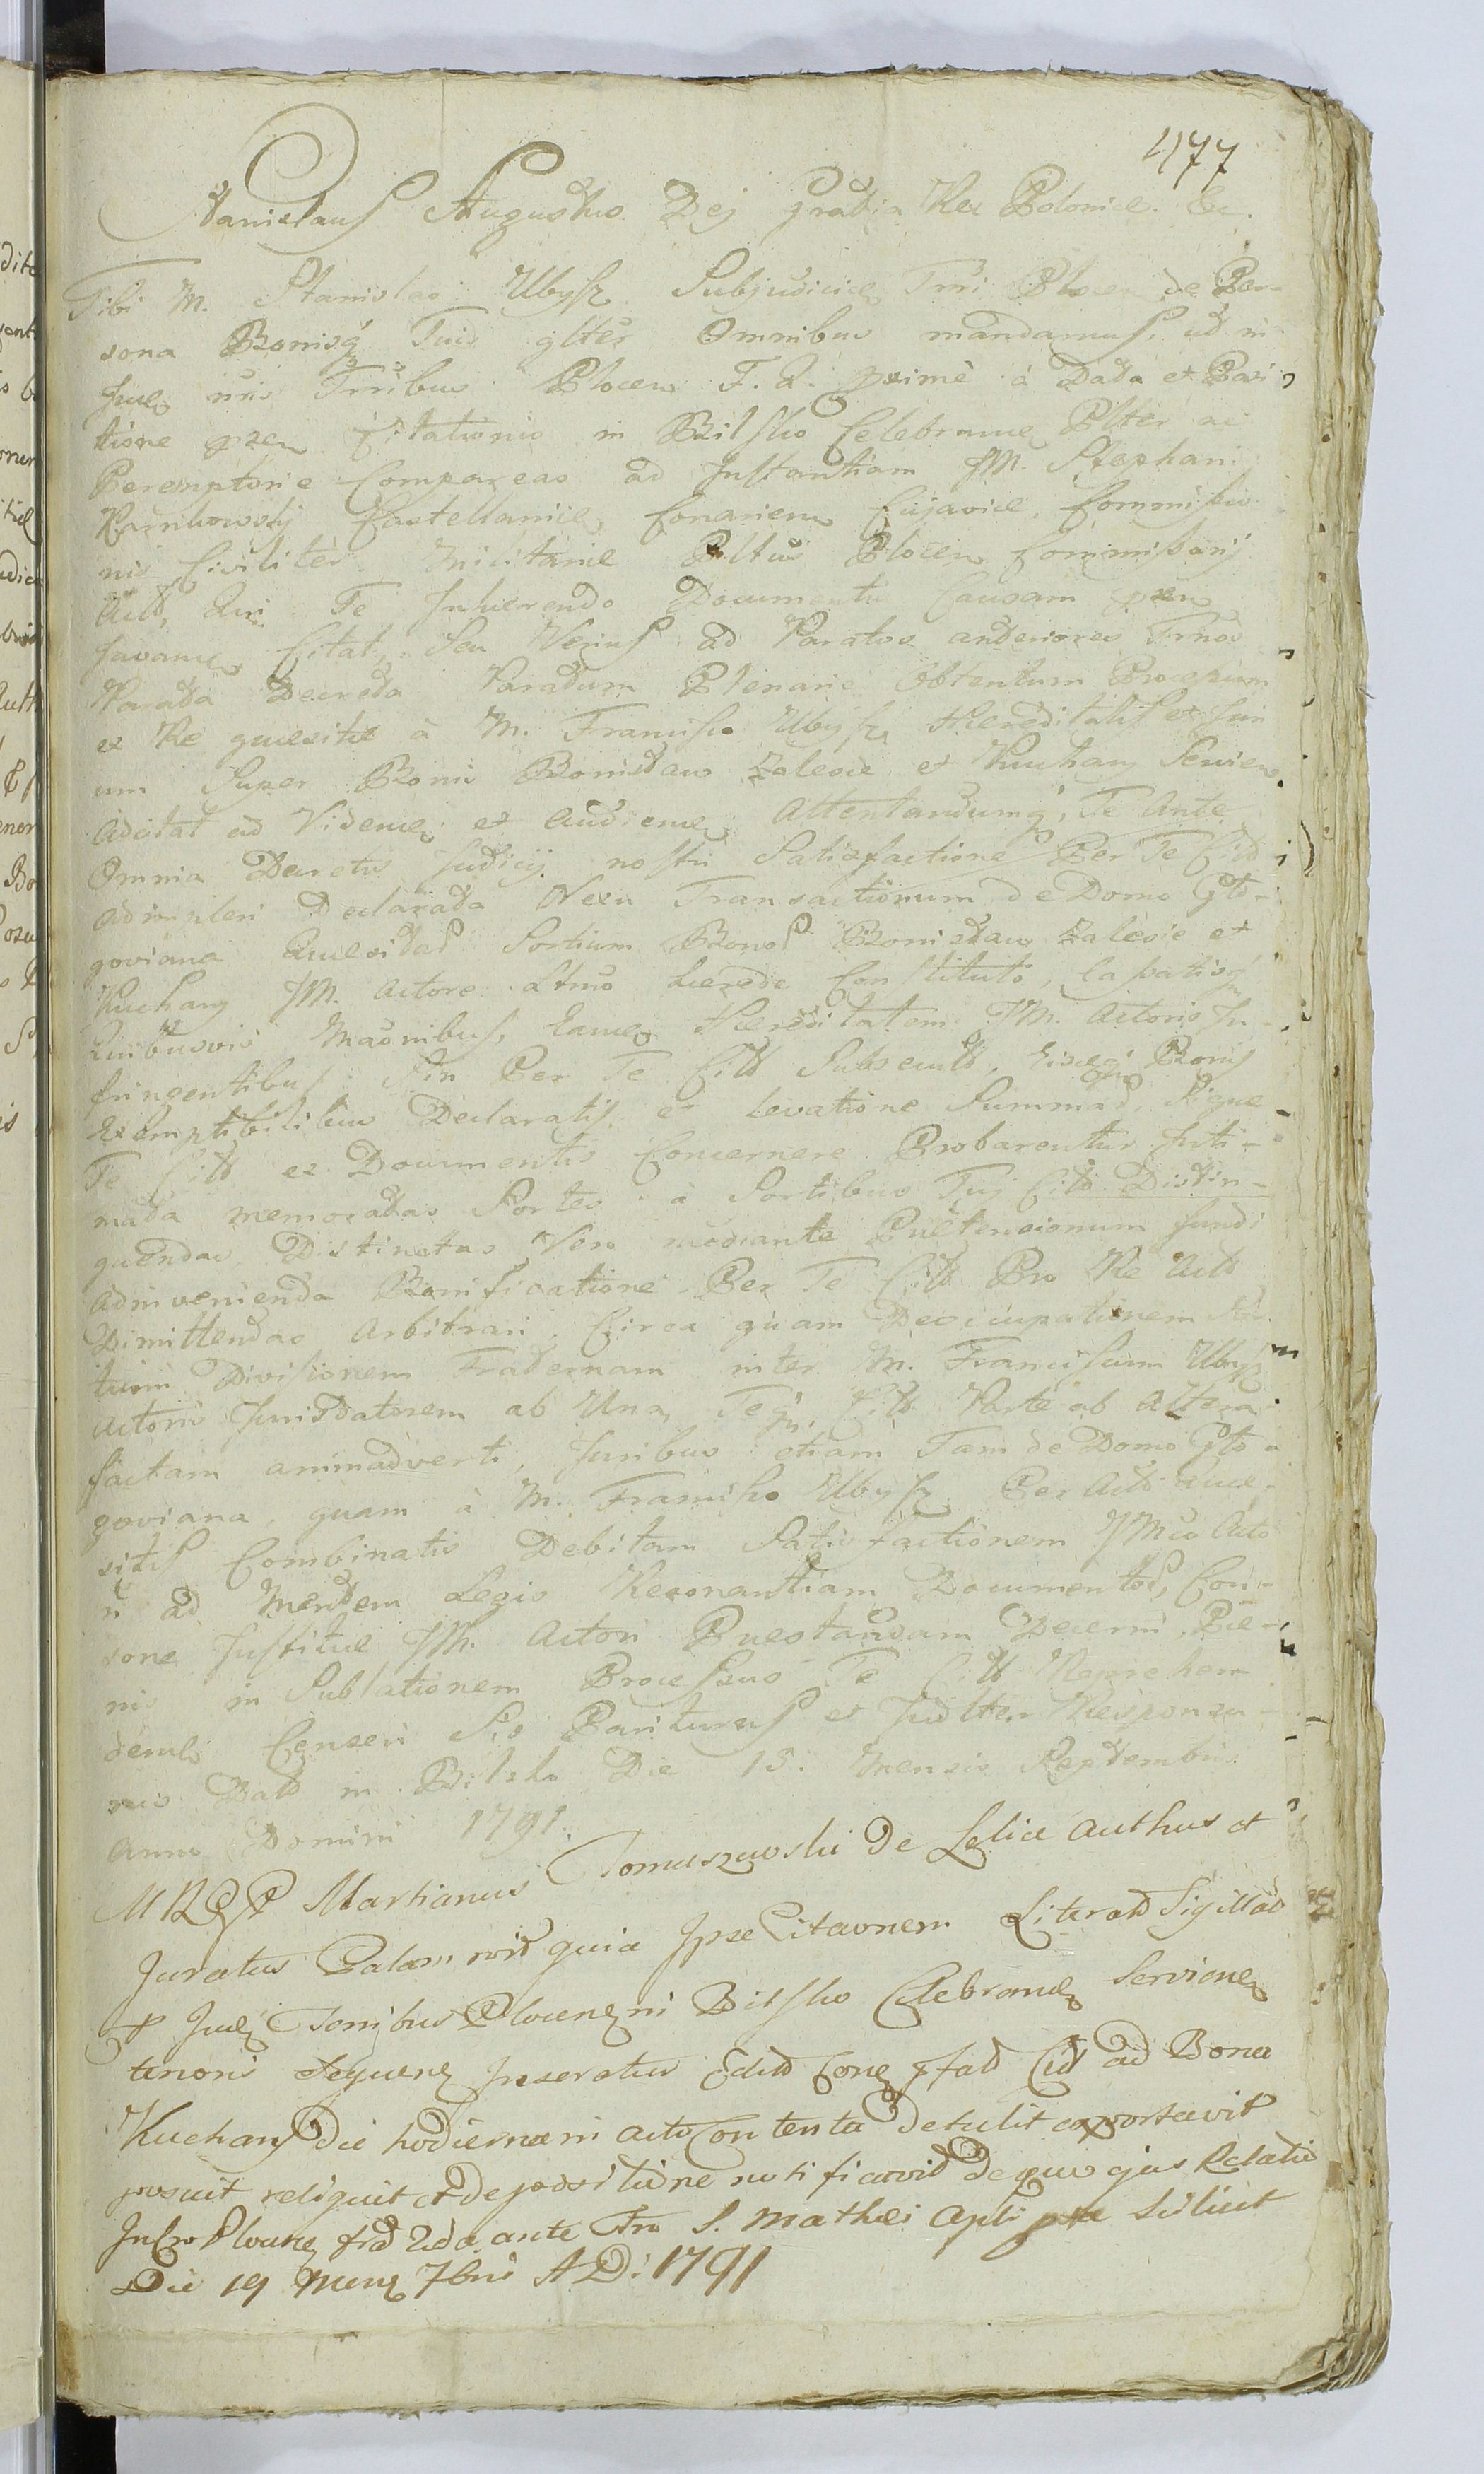 477
Stanislaus Augustus Dej gratia Rex Poloniæ. &c.
Tibi M. Stanislao Ubysz Subjudicidæ Trri Plocen de Per-
sona Bonisq Tuis glter Omnibus mandamus, ut in
Judiis Trribus Plocen F. 2. prime à Data et Posi
tione præn Citationis in Bilsko Celebranæ Plter ac
Peremptorie Compareas ad Instantiam JM. Stephani
Karnkowskj Castellanidæ Conarien Cujaviæ, Commissio
nis Civiliter Militaris Pltus Plocen Commissarij
Act, Qui Te Inhærendo Documentis Causam præn
Citat, Seu Verius ad Paratos anteriores Trnos
Parata Decreta Paratum Plenarie Obtentum Processum
ex Re quæsitæ à M. Francisco Ubysz Hæreditatis et Juri
um Super Bonis Bonistaw Zalesie et Kuchary Servien
Adcitat ad Viden et Audien Attentandumq, Te Ante
Omnia Decretis Judicij nostri Satisfactione Per Te Citt
adimpleri Declarata Nexu Transactionum de Domo Gło-
goviana Quæsitas Sortium Bonor Bonistaw Zalesie et
Kuchary JM. Actore Ltmo hærede Constituto, Cassatisq
Quibusvis Maonibus, Eamq Hæreditatem JM. Actoris In-
fringentibus Sin Per Te Citt Subsecuts, Eisq Bonis
Exemptibilibus Declaratis, et Levatione Summar, Si quæ
Te Citt ex Documentis Concernere Probarentur Inti-
mata memoratas Sortes à Sortibus Tuj Citt Distin-
guendas, Distinctas Vero mediante Prætensionum fundi
Adinvenienda Bonificatione Per Te Citt Pro Re Acts
Dimittendas Arbitrari, Circa quam Deoccupationem Sor
tium Divisionem Fraternam inter M. Franciscum Ubysz
Actoris Jurisdatorem ab Una, Teq, Citt Parte ab Altera
factam animadverti, Juribus etiam Tam de Domo Gło
goviana, quam à M. Francisco Ubysz Per Acts quæ-
sitis Combinatis Debitam Satisfactionem JMco Acto
ri ad Mentem Legis Resonantiam Documentor, Con-
sone Justitiæ JM. Actori Præstandam Decerni, Pœ-
nis in Sublationem Processus Te Citt Reprehen
den Censeri Sis Pariturus et Judlter Responsu-
rus Datt in Bilsko Die 15. Mensis Septembris
Anno Domini 1791.
Martianus Tomaszewski de Lelice authus et
Juratus Palam rt quia Ipse Citaonem Literatt Sigillat
p Jud Trribus Plocen in Bilsko Celebran Servien
tenoris Sequen Inseratur Edit Con pfat Cit ad Bona
Kuchary die hodierna in acto Contenta detulit exportavit
posuit reliquit et de positione notificavit de quo ejus Relatio
In Cro Plocen fra 2da ante Fm S. Mathæi Apli pta Scilicet
Die 19 Men 7bris A D: 1791